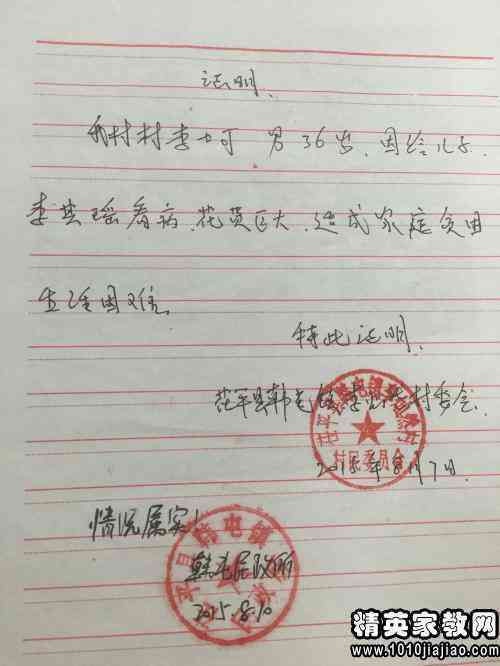 证明
我村村李士可 男 36岁、因给儿子
李其瑶看病、花费巨大、造成家庭负
生活困难
特此证明、
茌平县韩屯镇李 村委会
村民委员会
2015年8月7日
情况属实!
韩屯镇
韩屯民政所
2015.8.10
精英家教网
www.1010jiajiao.com